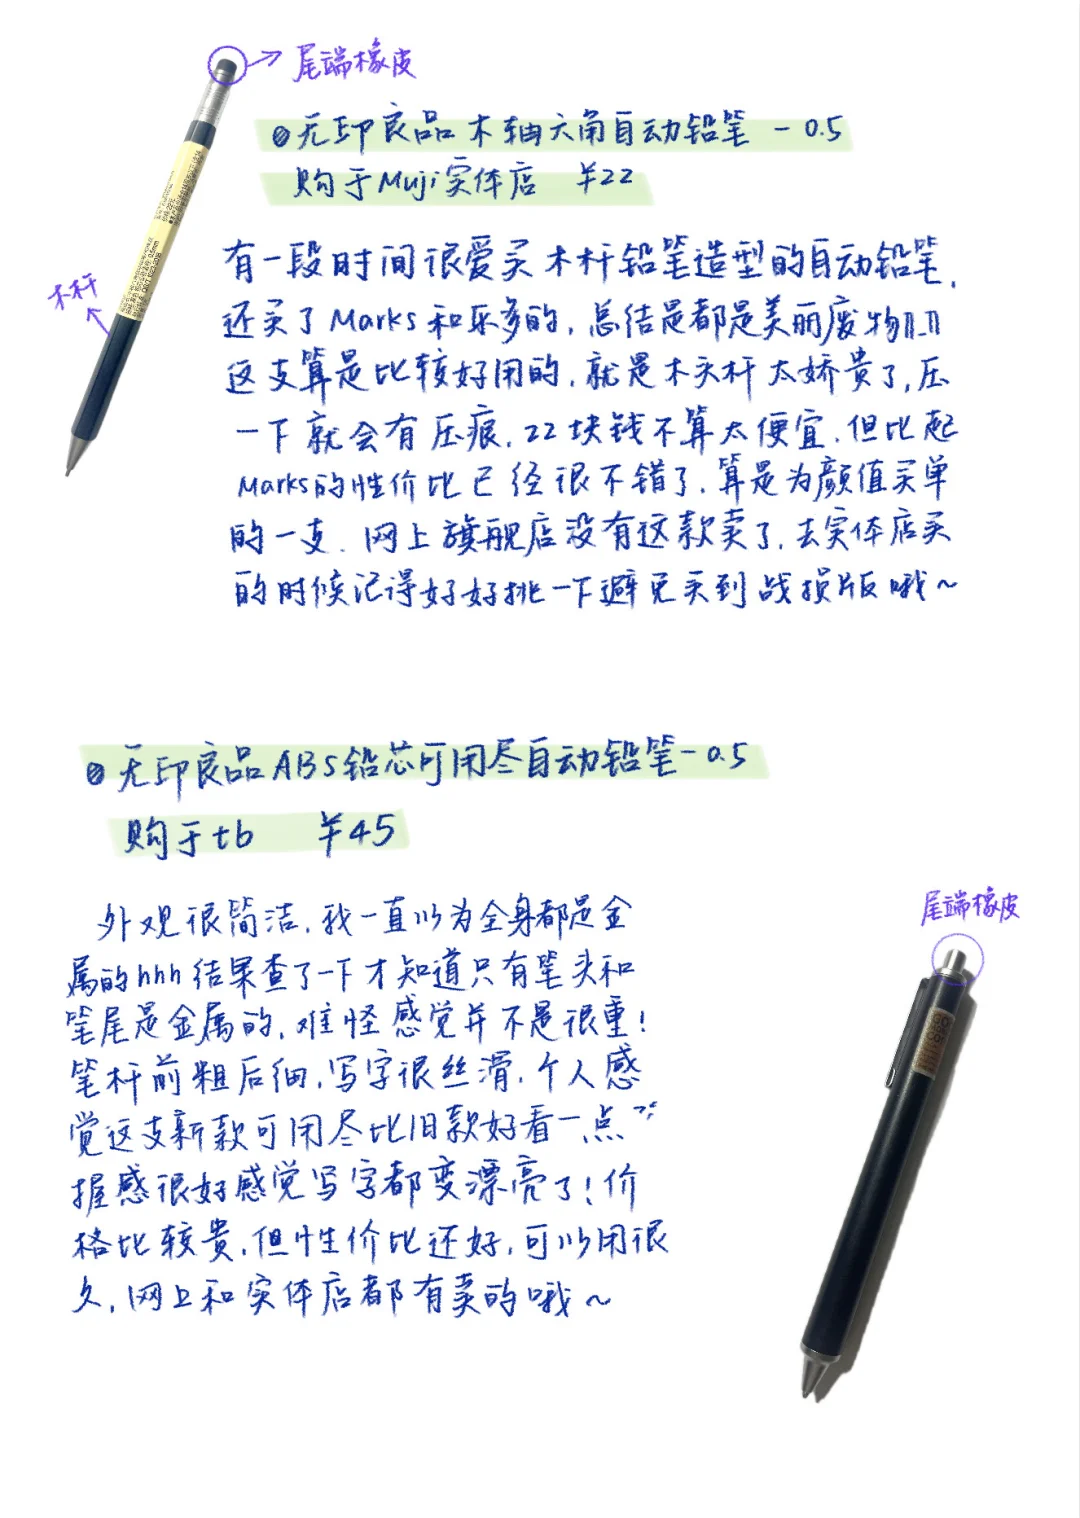 尾端橡皮
无印良品木轴六角自动铅笔 - 0.5
购于Muji实体店 ¥22
木杆
有一段时间很爱买木杆铅笔造型的自动铅笔,
还买了Marks和乐多的,总结是都是美丽废物
这支算是比较好用的,就是木头杆太娇贵了,压
一下就会有压痕,22块钱不算太便宜,但比起
Marks的性价比已经很不错了,算是为颜值买单
的一支.网上旗舰店没有这款卖了,去实体店买
的时候记得好好挑一下避免买到战损版哦~
无印良品ABS铅芯可用尽自动铅笔-0.5
购于tb ¥45
外观很简洁,我一直以为全身都是金
属的hhh结果查了一下才知道只有笔头和
笔尾是金属的,难怪感觉并不是很重!
笔杆前粗后细,写字很丝滑,个人感
觉这支新款可用尽比旧款好看一点
握感很好感觉写字都变漂亮了!价
格比较贵,但性价比还好,可以用很
久,网上和实体店都有卖的哦~
尾端橡皮